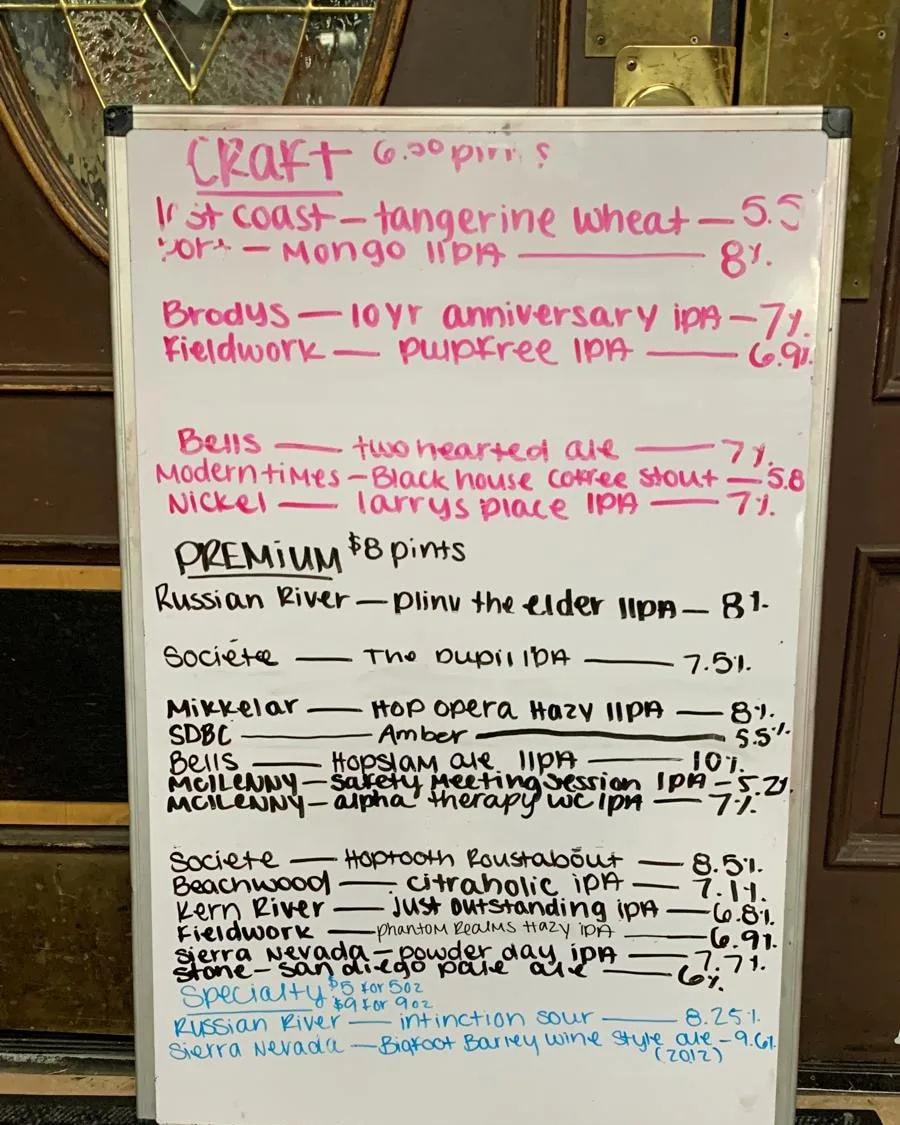 CRaft 6.50 pints
st coast – tangerine wheat – 5.5
Port – Mongo IIPA — 8%
Brodys — 10yr anniversary iPA – 7%
Fieldwork — pwpfree IPA — 6.9%
Bells — two hearted ale — 7%
Modern times – Black house coffee stout – 5.8
Nickel — larrys place IPA — 7%
PREMIUM $8 pints
Russian River – pliny the elder IIPA – 8%
Societe — The pupil IPA — 7.5%
Mikkelar — Hop opera Hazy IIPA — 8%
SDBC — Amber — 5.5%
Bells — Hopslam ale IIPA — 10%
MCILENNY – Safety Meeting Session IPA – 5.2%
MCILENNY – alpha therapy WC IPA — 7%
Societe — Hoptooth Roustabout — 8.5%
Beachwood — citraholic iPA — 7.1%
Kern River — Just outstanding iPA – 6.8%
Fieldwork — phantom Realms Hazy iPA — 6.9%
Sierra Nevada – powder day iPA — 7.7%
Stone – San diego pale ale — 6%
Specialty $5 for 5oz
$9 for 9oz
Russian River — intinction sour — 8.25%
Sierra Nevada – Bigfoot Barley wine style ale – 9.6%
(2012)